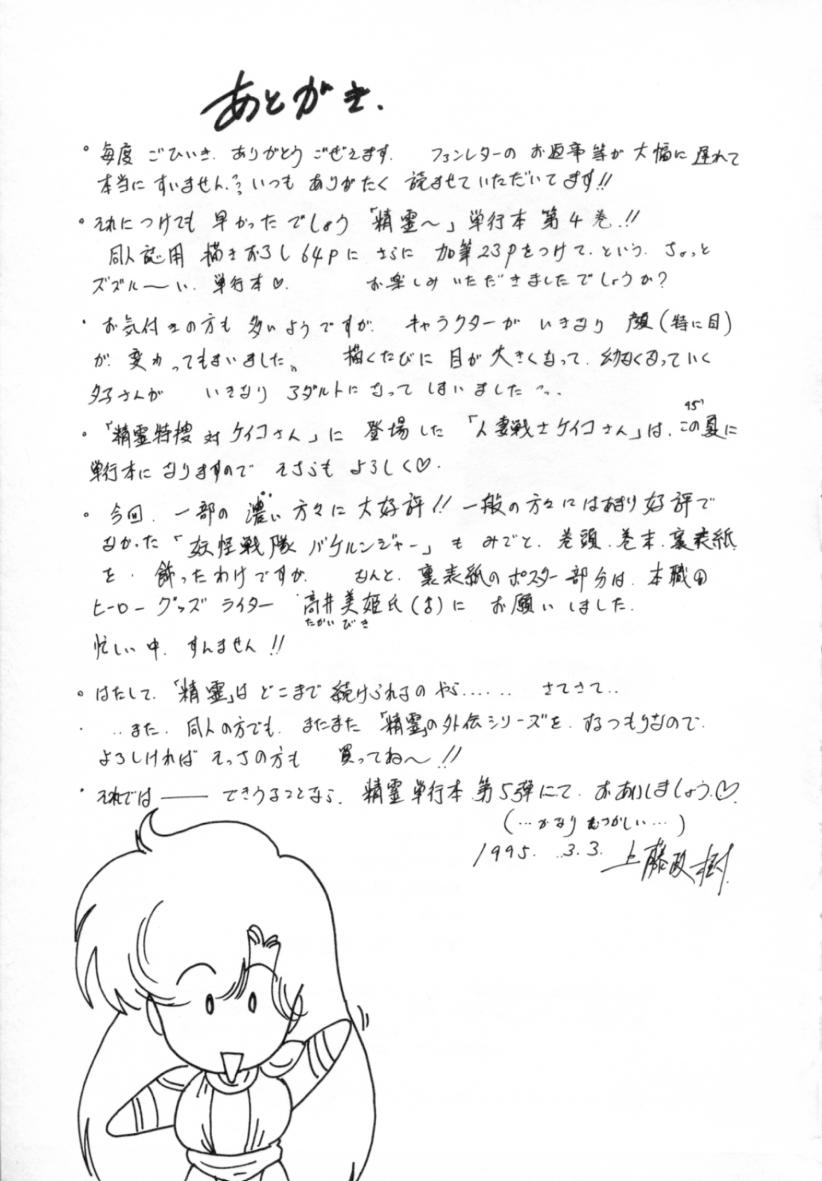 あとがき.
・毎度 ごひいき. ありがとう ごぜえます. ファンレターの お返事等が 大幅に 遅れて
本当に すいません. いつも ありがたく 読ませていただいてます!!
・それにつけても 早かったでしょう「精霊〜」単行本 第4巻.!!
同人誌用 描きおろし64Pに さらに 加筆23Pをつけて. という. ちょっと
ズズル〜い. 単行本♡. お楽しみ いただきましたでしょうか?
・お気付きの方も 多いようですが. キャラクターが いきなり 顔(特に目)
が. 変わってしまいました。 描くたびに 目が 大きくなって. 幼くなっていく
夕子さんが いきなり アダルトになって しまいました
・「精霊特捜 対 ケイコさん」に 登場した「人妻戦士ケイコさん」は. この夏に
95'
単行本に なりますので そちらも よろしく♡.
・今回. 一部の 濃い 方々に 大好評!! 一般の方々には あまり 好評で
なかった「妖怪戦隊 バケルンジャー」も みごと. 巻頭. 巻末. 裏表紙
を. 飾ったわけですが. なんと. 裏表紙の ポスター部分は. 本職の
ヒーロー グッズ ライター 高井美姫氏(♀)に お願いしました.
たかい びき
忙しい中. すんません!!
・はたして.「精霊」は どこまで 続けられるの やら...... さてさて..
・..また. 同人の方でも. またまた「精霊」の外伝シリーズを. するつもりなので.
よろしければ そっちの方も 買ってね〜!!
・それでは―― できうることなら. 精霊単行本 第5弾にて. おあいしましょう.♡
(…かなり むつかしい…)
1995. 3.3. 上藤政樹